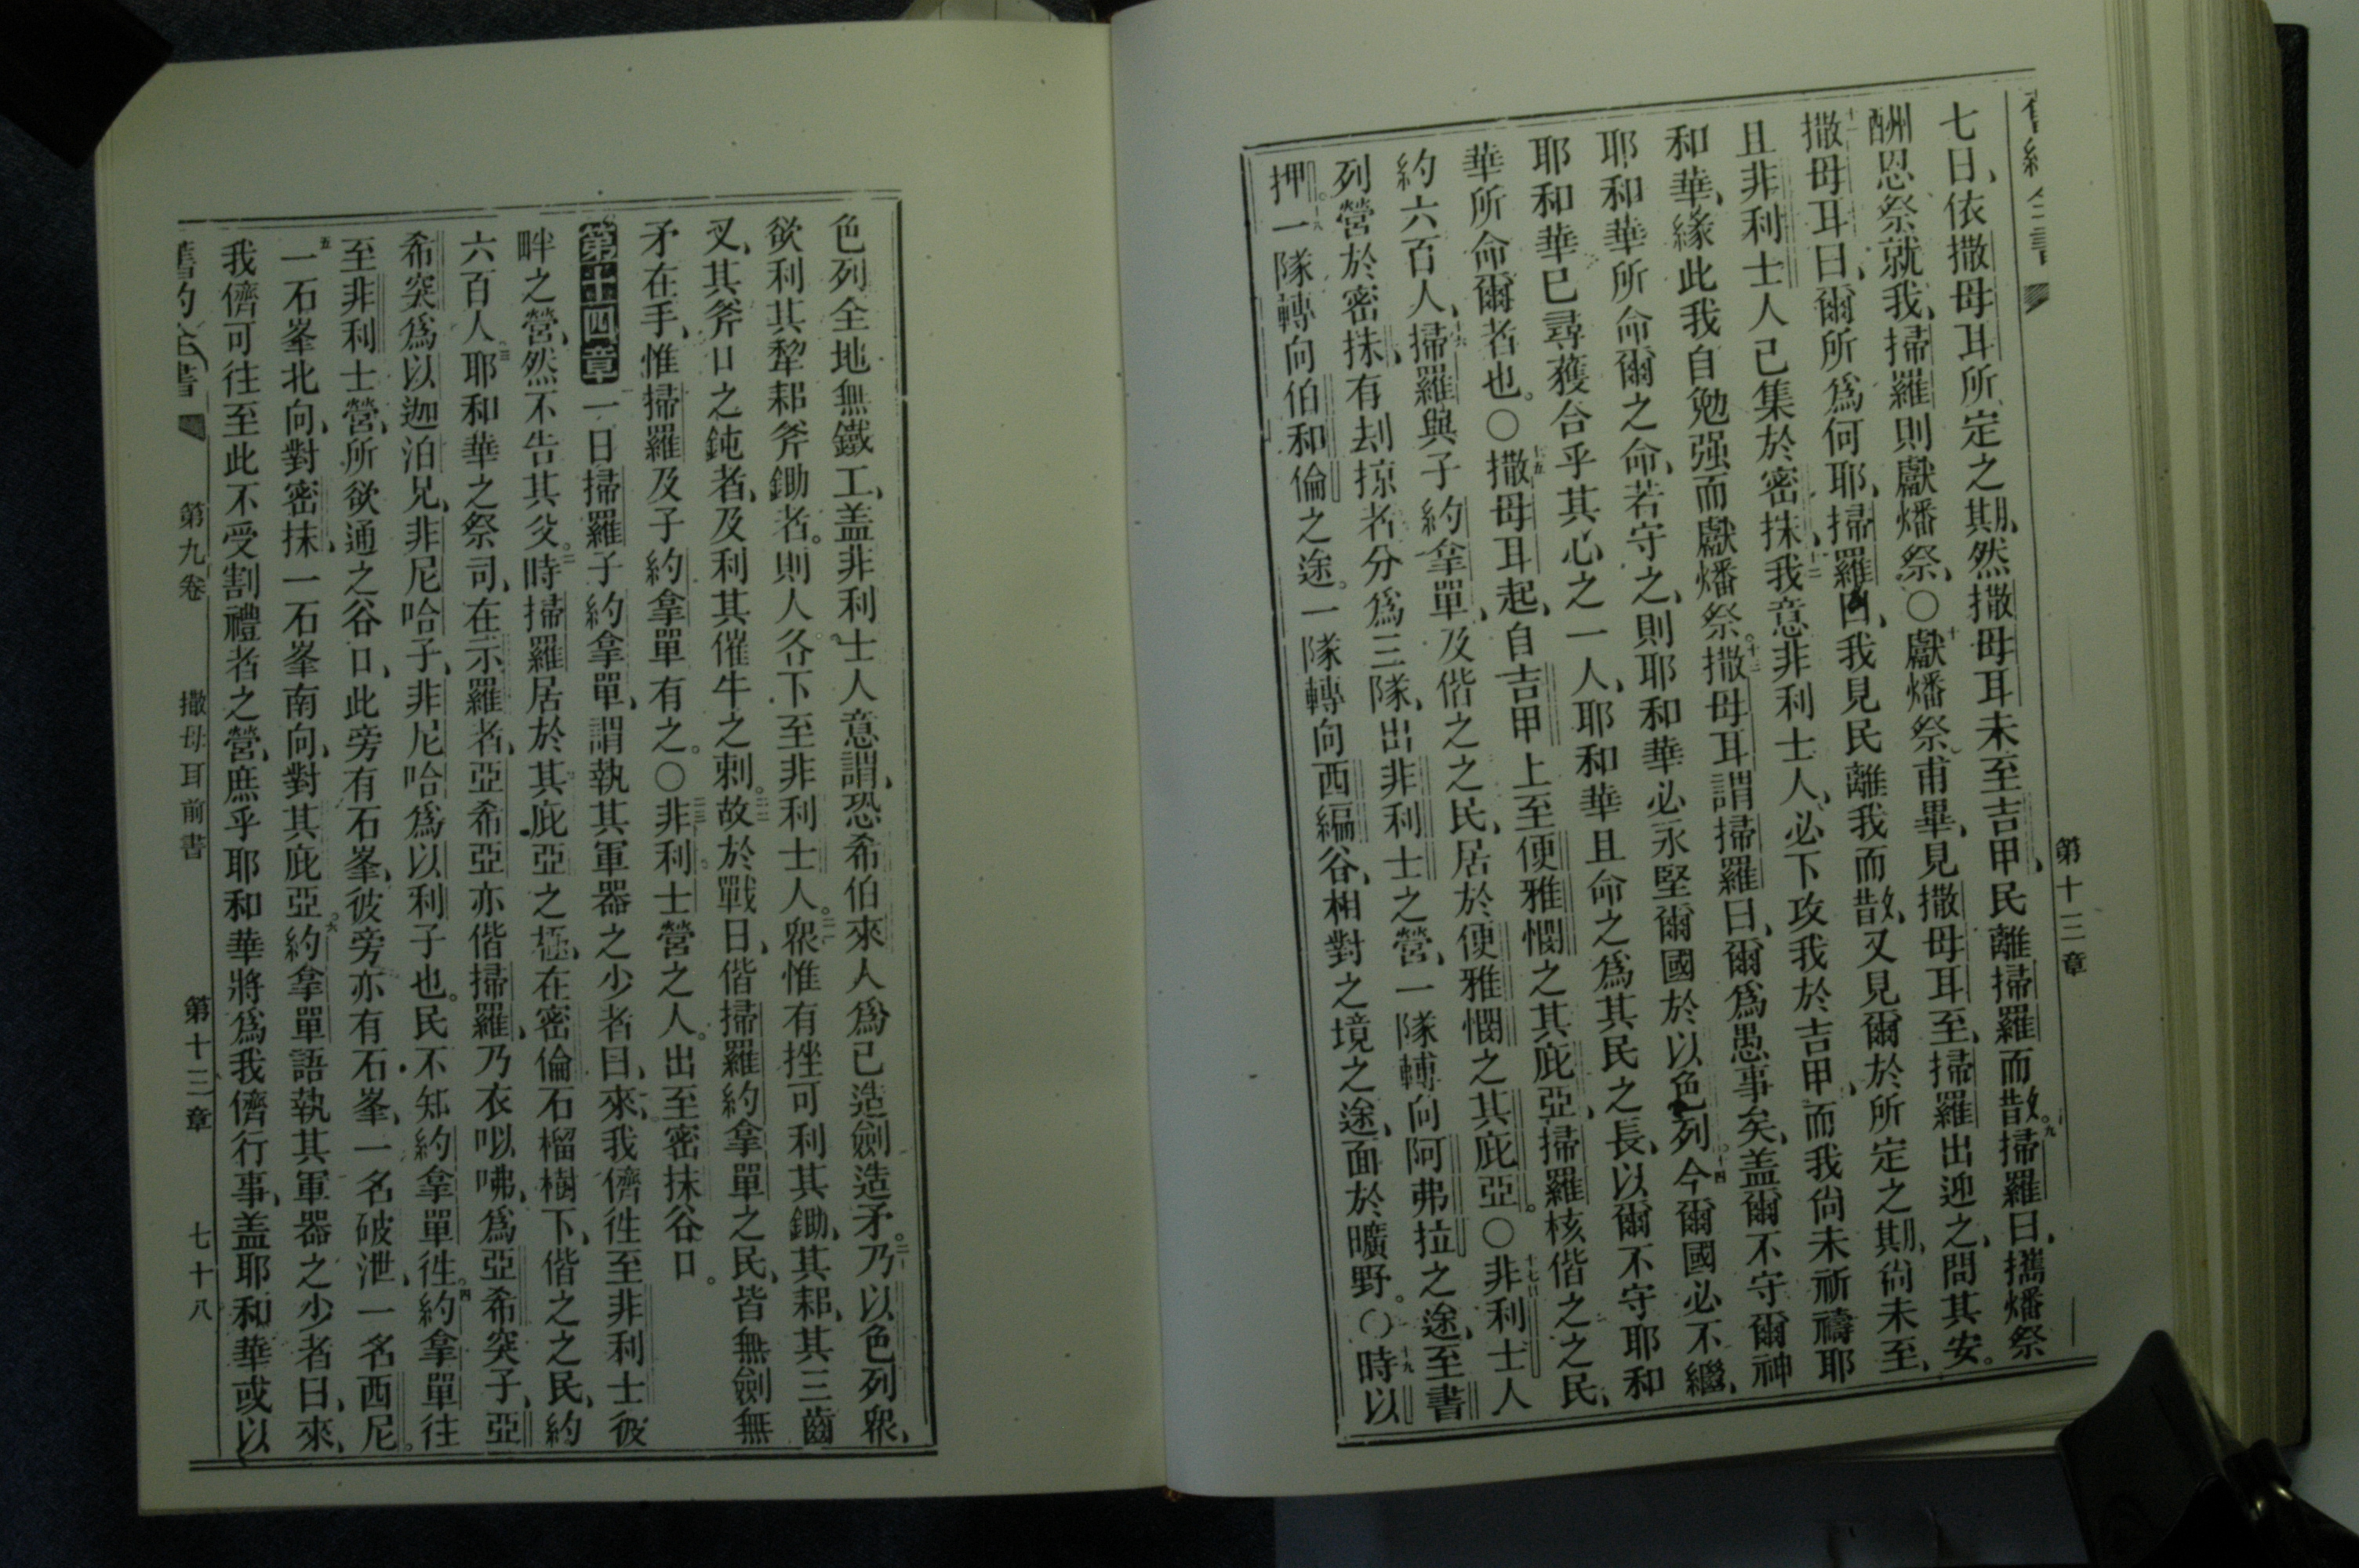 第十三章
七日、依撒母耳所定之期、然撒母耳未至吉甲、民離掃羅而散。九掃羅曰、攜燔祭
酬恩祭就我、掃羅則獻燔祭、〇十獻燔祭甫畢、見撒母耳至、掃羅出迎之、問其安。
十一撒母耳曰、爾所爲何耶、掃羅曰、我見民離我而散、又見爾於所定之期、尚未至、
且非利士人已集於密抹、十二我意非利士人、必下攻我於吉甲、而我尚未祈禱耶
和華、緣此我自勉强而獻燔祭。十三撒母耳謂掃羅曰、爾爲愚事矣、盖爾不守爾神
耶和華所命爾之命、若守之、則耶和華必永堅爾國於以色列。十四今爾國必不繼、
耶和華已尋獲合乎其心之一人、耶和華且命之爲其民之長、以爾不守耶和
華所命爾者也。〇十五撒母耳起、自吉甲上至便雅憫之其庇亞、掃羅核偕之之民、
約六百人、十六掃羅與子約拿單、及偕之之民、居於便雅憫之其庇亞。〇十七非利士人
列營於密抹、有刦掠者分爲三隊、出非利士之營、一隊轉向阿弗拉之途、至書
押。十八一隊轉向伯和倫之途。一隊轉向西編谷、相對之境之途、面於曠野。〇十九時以
色列全地無鐵工、盖非利士人意謂、恐希伯來人爲已造劍造矛。二十乃以色列衆、
欲利其犂耜斧鋤者。則人各下至非利士人。二一衆惟有挫可利其鋤、其耜、其三齒
叉、其斧口之鈍者、及利其催牛之刺。二二故於戰日、偕掃羅約拿單之民、皆無劍無
矛在手、惟掃羅及子約拿單有之。〇二三非利士營之人。出至密抹谷口。
第十四章 一日掃羅子約拿單、謂執其軍器之少者曰、來、我儕徃至非利士彼
畔之營、然不告其父。二時掃羅居於其庇亞之極、在密倫石榴樹下、偕之之民、約
六百人、三耶和華之祭司、在示羅者、亞希亞亦偕掃羅、乃衣㕥咈、爲亞希突子、亞
希突爲以迦泊兄、非尼哈子、非尼哈爲以利子也。民不知約拿單徃。四約拿單往
至非利士營、所欲通之谷口、此旁有石峯、彼旁亦有石峯、一名破泄、一名西尼。
五一石峯北向、對密抹、一石峯南向、對其庇亞。六約拿單語執其軍器之少者曰、來、
我儕可往至此不受割禮者之營、庶乎耶和華將爲我儕行事、盖耶和華或以
舊約全書 第九卷 撒母耳前書 第十三章 七十八